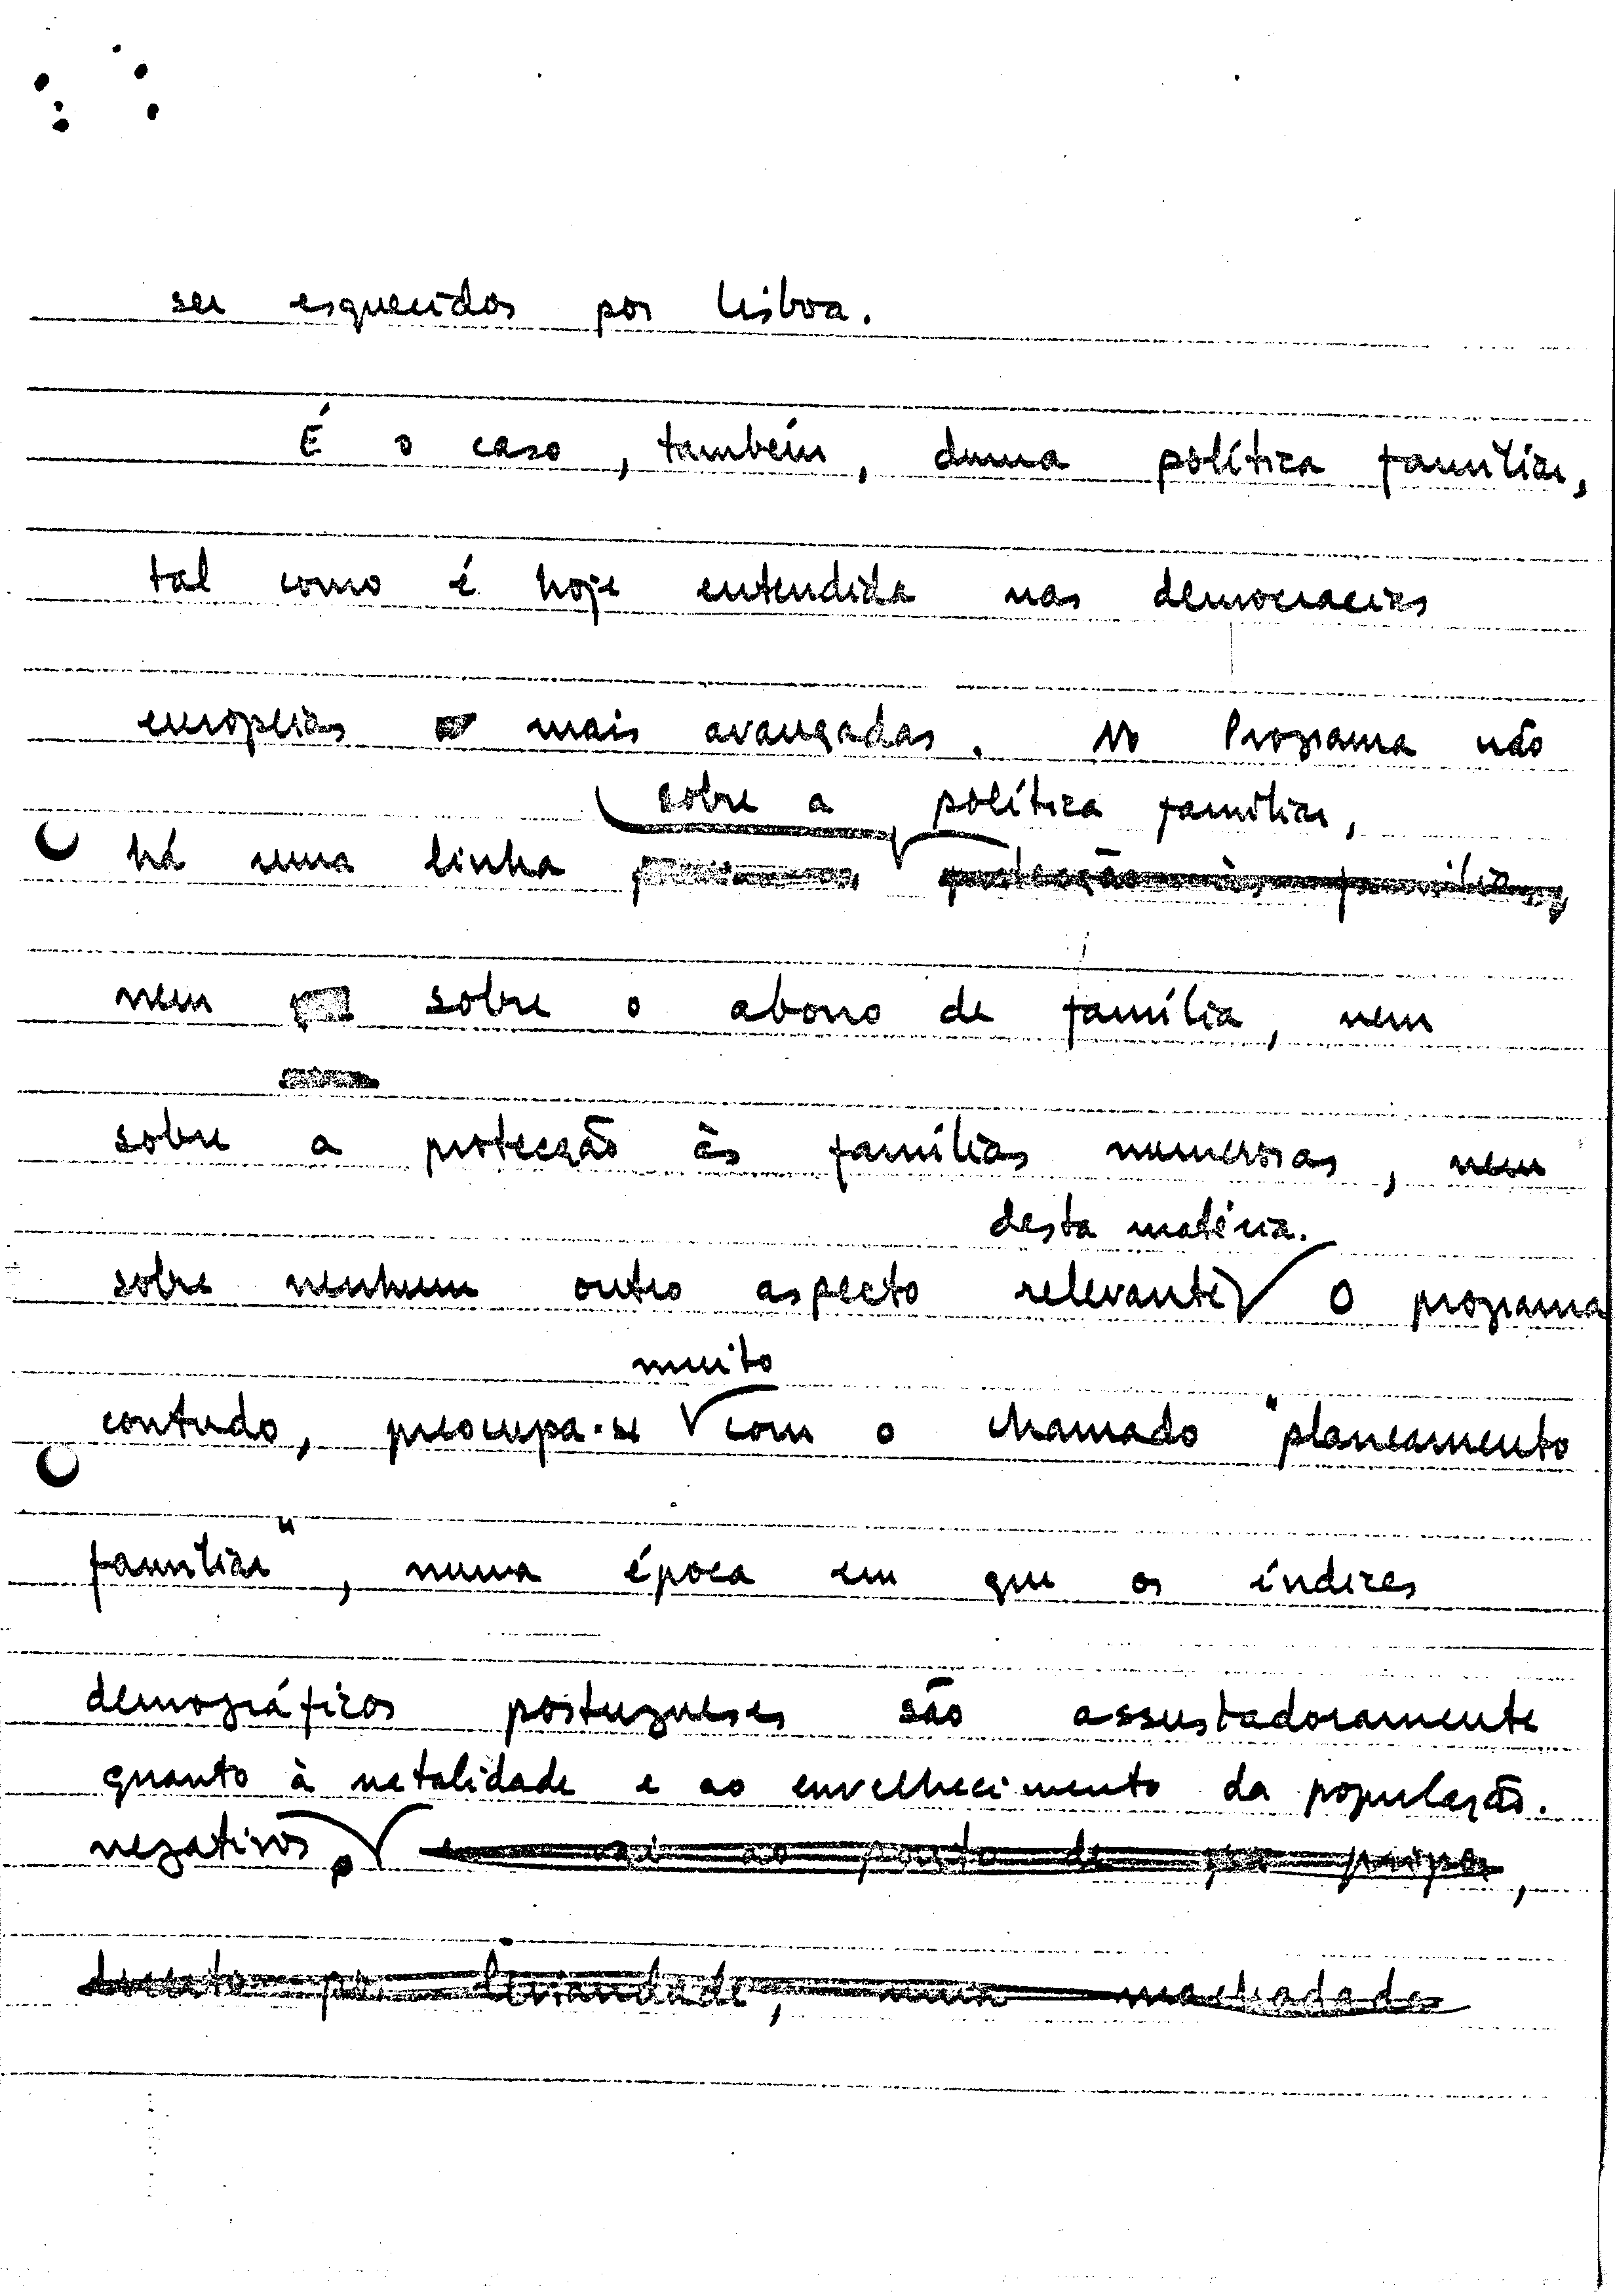 ser esquecidos por Lisboa.
É o caso, também, duma política familiar,
tal como é hoje entendida nas democracias
europeias mais avançadas. No Programa não
sobre a política familiar,
há uma linha
nem sobre o abono de família, nem
sobre a protecção às famílias numerosas, nem
desta matéria.
sobre nenhum outro aspecto relevante O programa
muito
contudo, preocupa-se com o chamado "planeamento
familiar", numa época em que os índices
demográficos portugueses são assustadoramente
quanto à natalidade e ao envelhecimento da população.
negativos